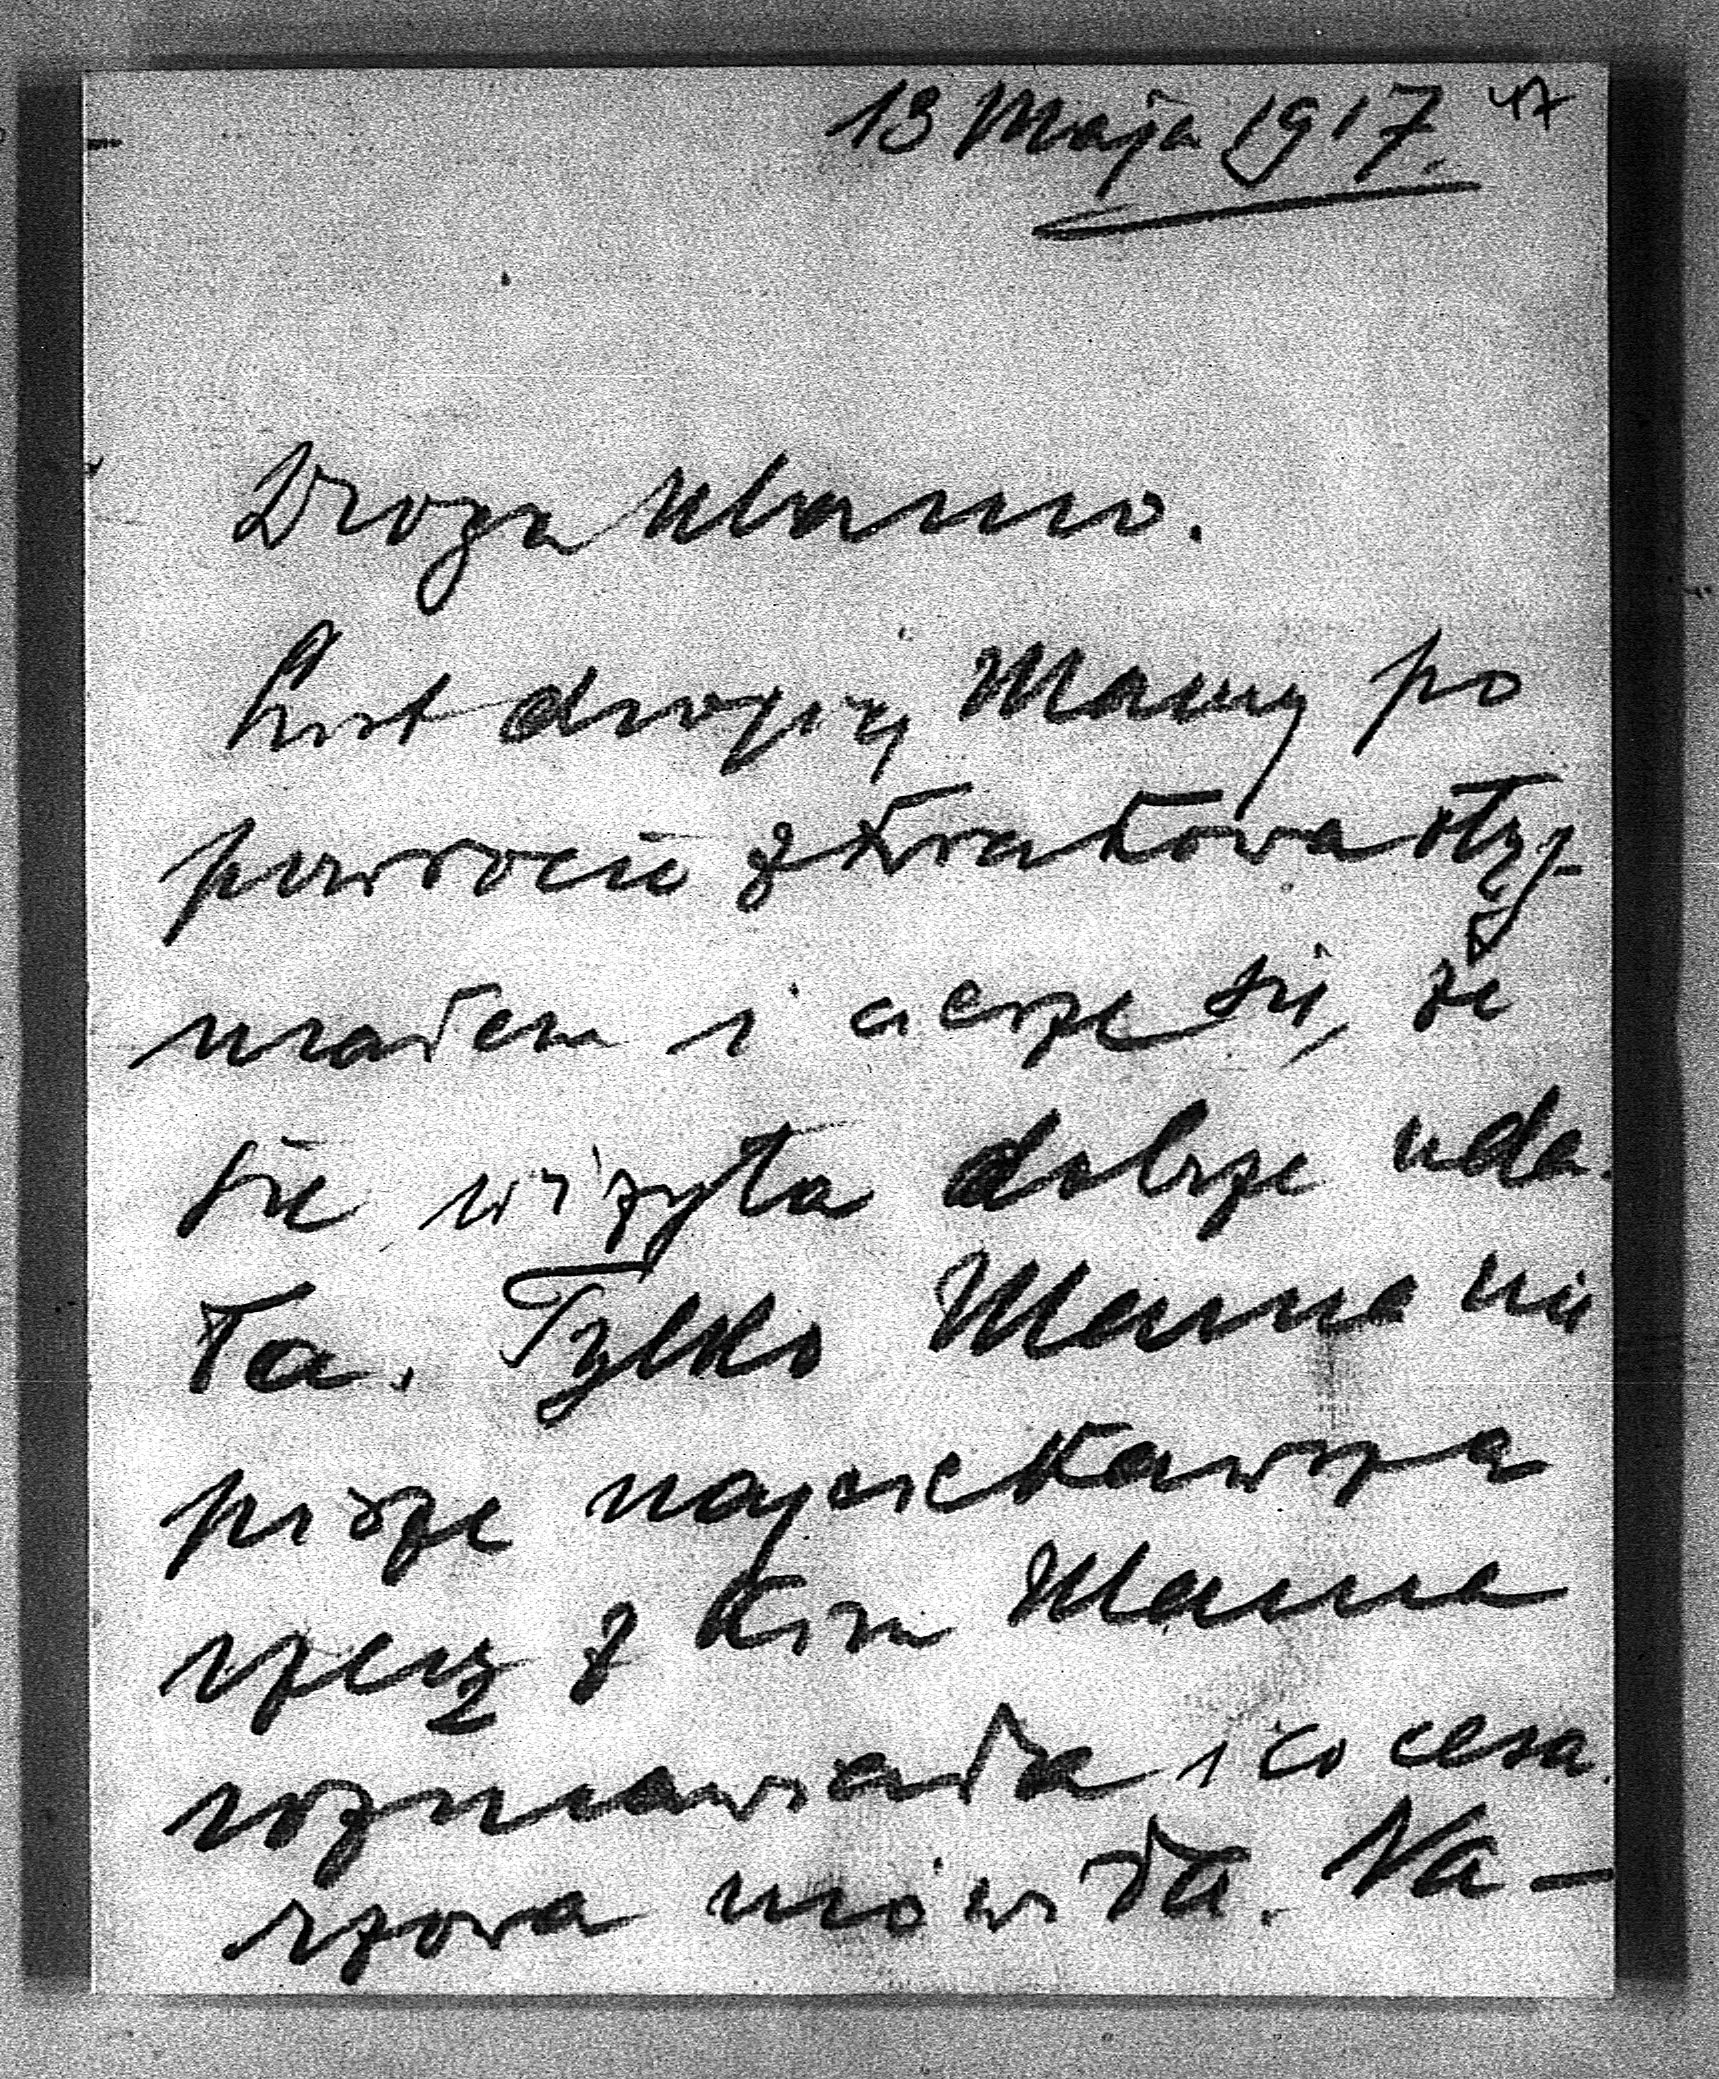 13 Maja 1917. 47
Droga Mamo.
List drogiej Mamy po
powrocie z Krakowa otrzy-
małem i cieszę się, że
się wizyta dobrze uda-
ła. Tylko Mama nie
pisze najciekawszą
rzecz z kim Mama
rozmawiała i co cesa-
rzowa mówiła. Na-